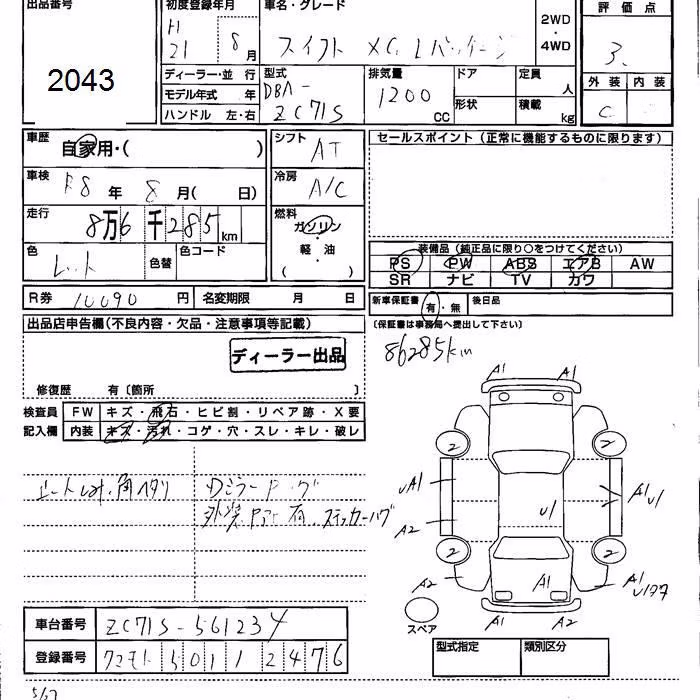 出品番号 初度登録年月 車名・グレード 評価点
H 21 8月 スイフト XG Lパッケージ 2WD・4WD 3
2043
ディーラー・並行 型式 排気量 ドア 定員 人 外装 内装
モデル年式 年 DBA- 1200 CC 形状 積載 kg C
ハンドル 左・右 ZC71S
車歴 自家用・( ) シフト AT セールスポイント(正常に機能するものに限ります)
車検 R8年 8月( 日) 冷房 A/C
走行 8万6千285km 燃料 ガソリン・軽油( )
色 レット 色替 色コード
装備品(純正品に限り○をつけてください)
PS PW ABS エアB AW
SR ナビ TV カワ
R券 10090円 名変期限 月 日 新車保証書 有・無 後日品
出品店申告欄(不良内容・欠品・注意事項等記載) (保証書は事務局へ提出して下さい)
ディーラー出品 86285km
修復歴 有〔箇所 〕
検査員 FW キズ・飛石・ヒビ割・リペア跡・X要
記入欄 内装 キズ・汚れ・コゲ・穴・スレ・キレ・破レ
A1 A1
2 2
UA1 U1 A1 U1
A2
2 2
A2 A1 A1
A1 A1
スペア
車台番号 ZC71S-561234
登録番号 クマモト 501 1 2476
型式指定 類別区分